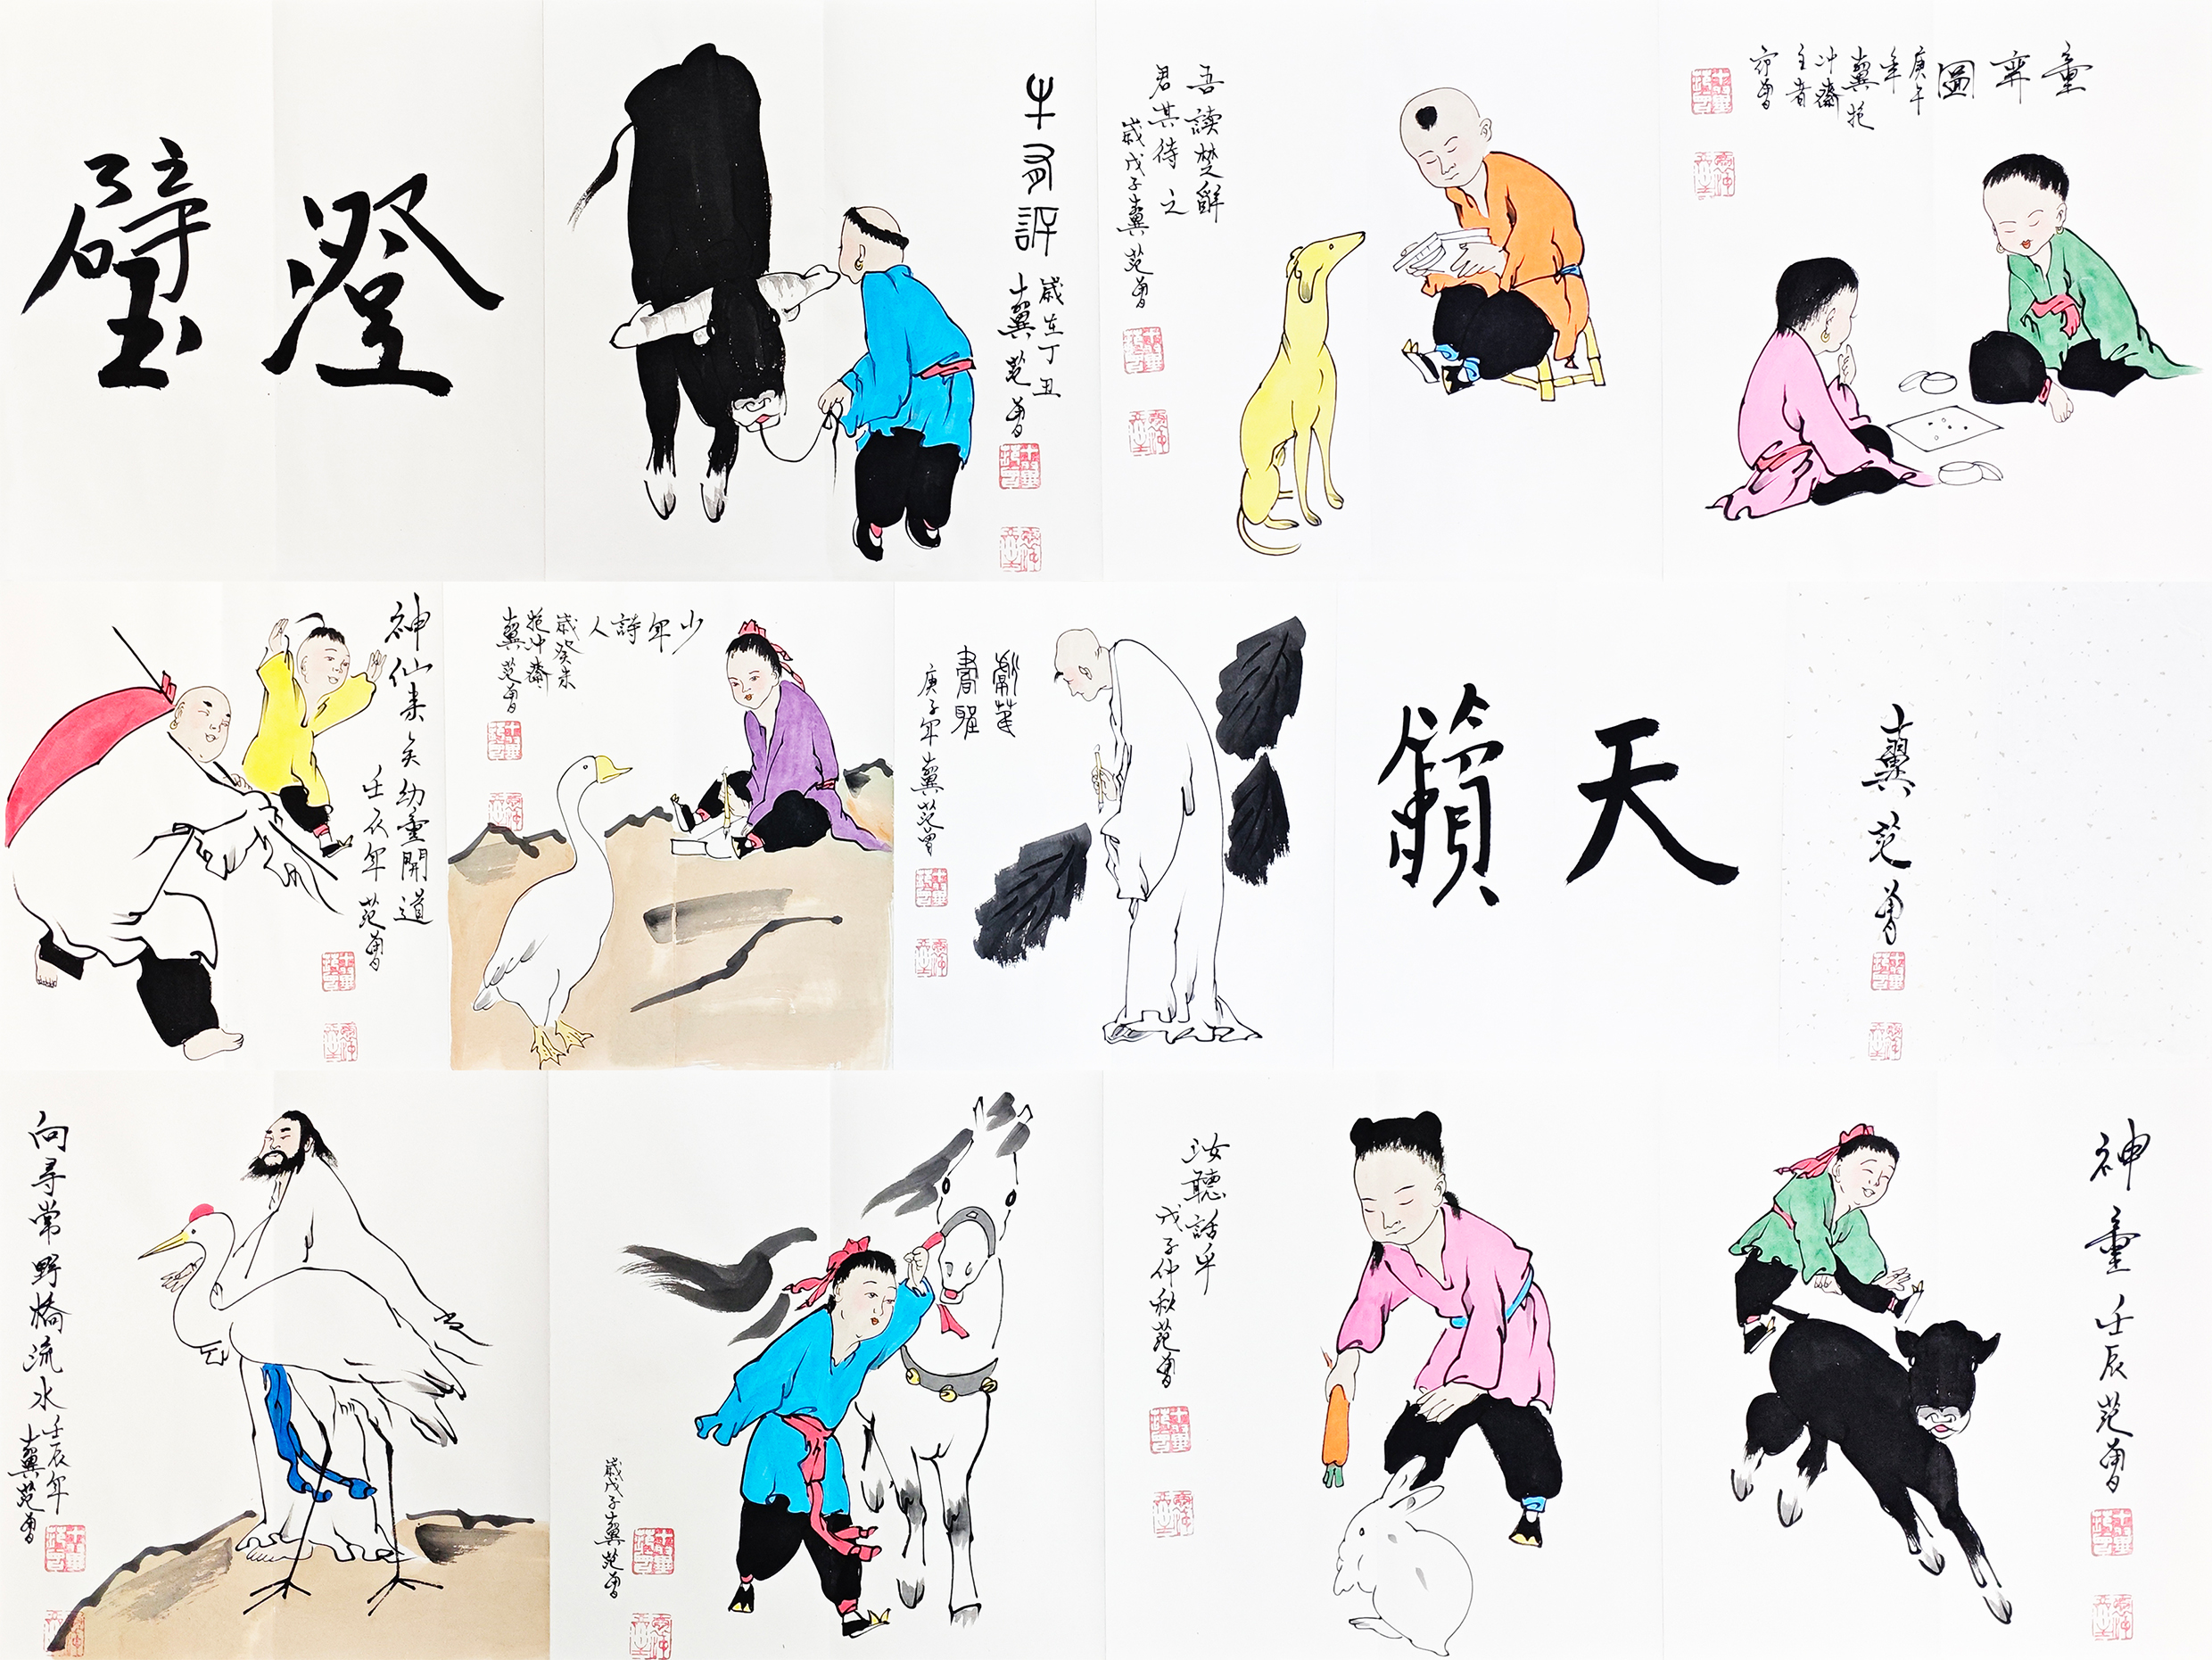 澄
璧
牛多評
歲在丁丑
十翼范曾
吾讀楚辭
君其待之
歲戊子十翼范曾
童弈圖
庚午
年
十翼范
冲齋
主者
范曾
神仙來矣幼童開道
壬辰年
范曾
少年詩人
歲癸未
抱冲齋
十翼范曾
書聖
庚子年十翼范曾
天
籟
十翼范曾
向尋常野橋流水
壬辰年
十翼范曾
歲戊子十翼范曾
汝聽話乎
戊子仲秋范曾
神童
壬辰范曾